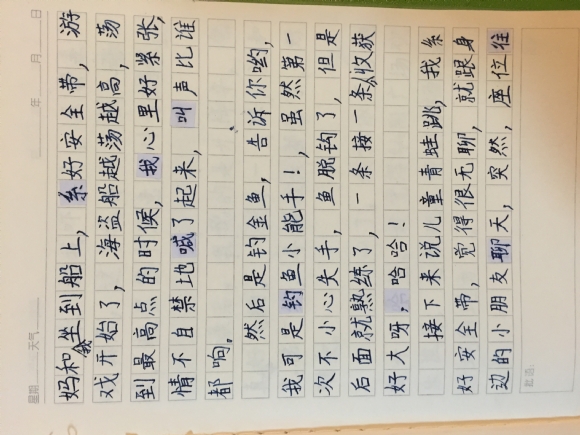 星期 天气 年 月 日
妈和我坐到船上，系好安全带，游
戏开始了，海盗船越荡越高，荡
到最高点的时候，我心里好紧张，
情不自禁地喊了起来，叫声比谁
都响。
然后是钓金鱼，告诉你哟，
我可是钓鱼小能手！，虽然第一
次不小心失手，鱼脱钩了，但是
后面就熟练了，一条接一条，收获
好大呀，哈哈！
接下来说儿童青蛙跳，我系
好安全带，觉得很无聊，就跟身
边的小朋友聊天，突然，座位往